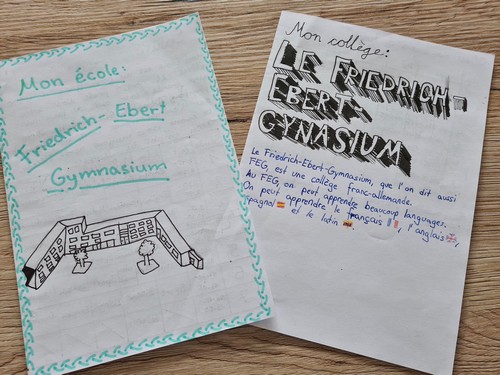 Mon école:
Friedrich-Ebert
Gymnasium
Mon collège:
LE FRIEDRICH-
EBERT-
GYNASIUM
Le Friedrich-Ebert-Gymnasium, que l'on dit aussi
FEG, est une collège franc-allemande.
Au FEG, on peut apprendre beaucoup languages.
On peut apprendre le français, l'anglais,
pagnol et le latin